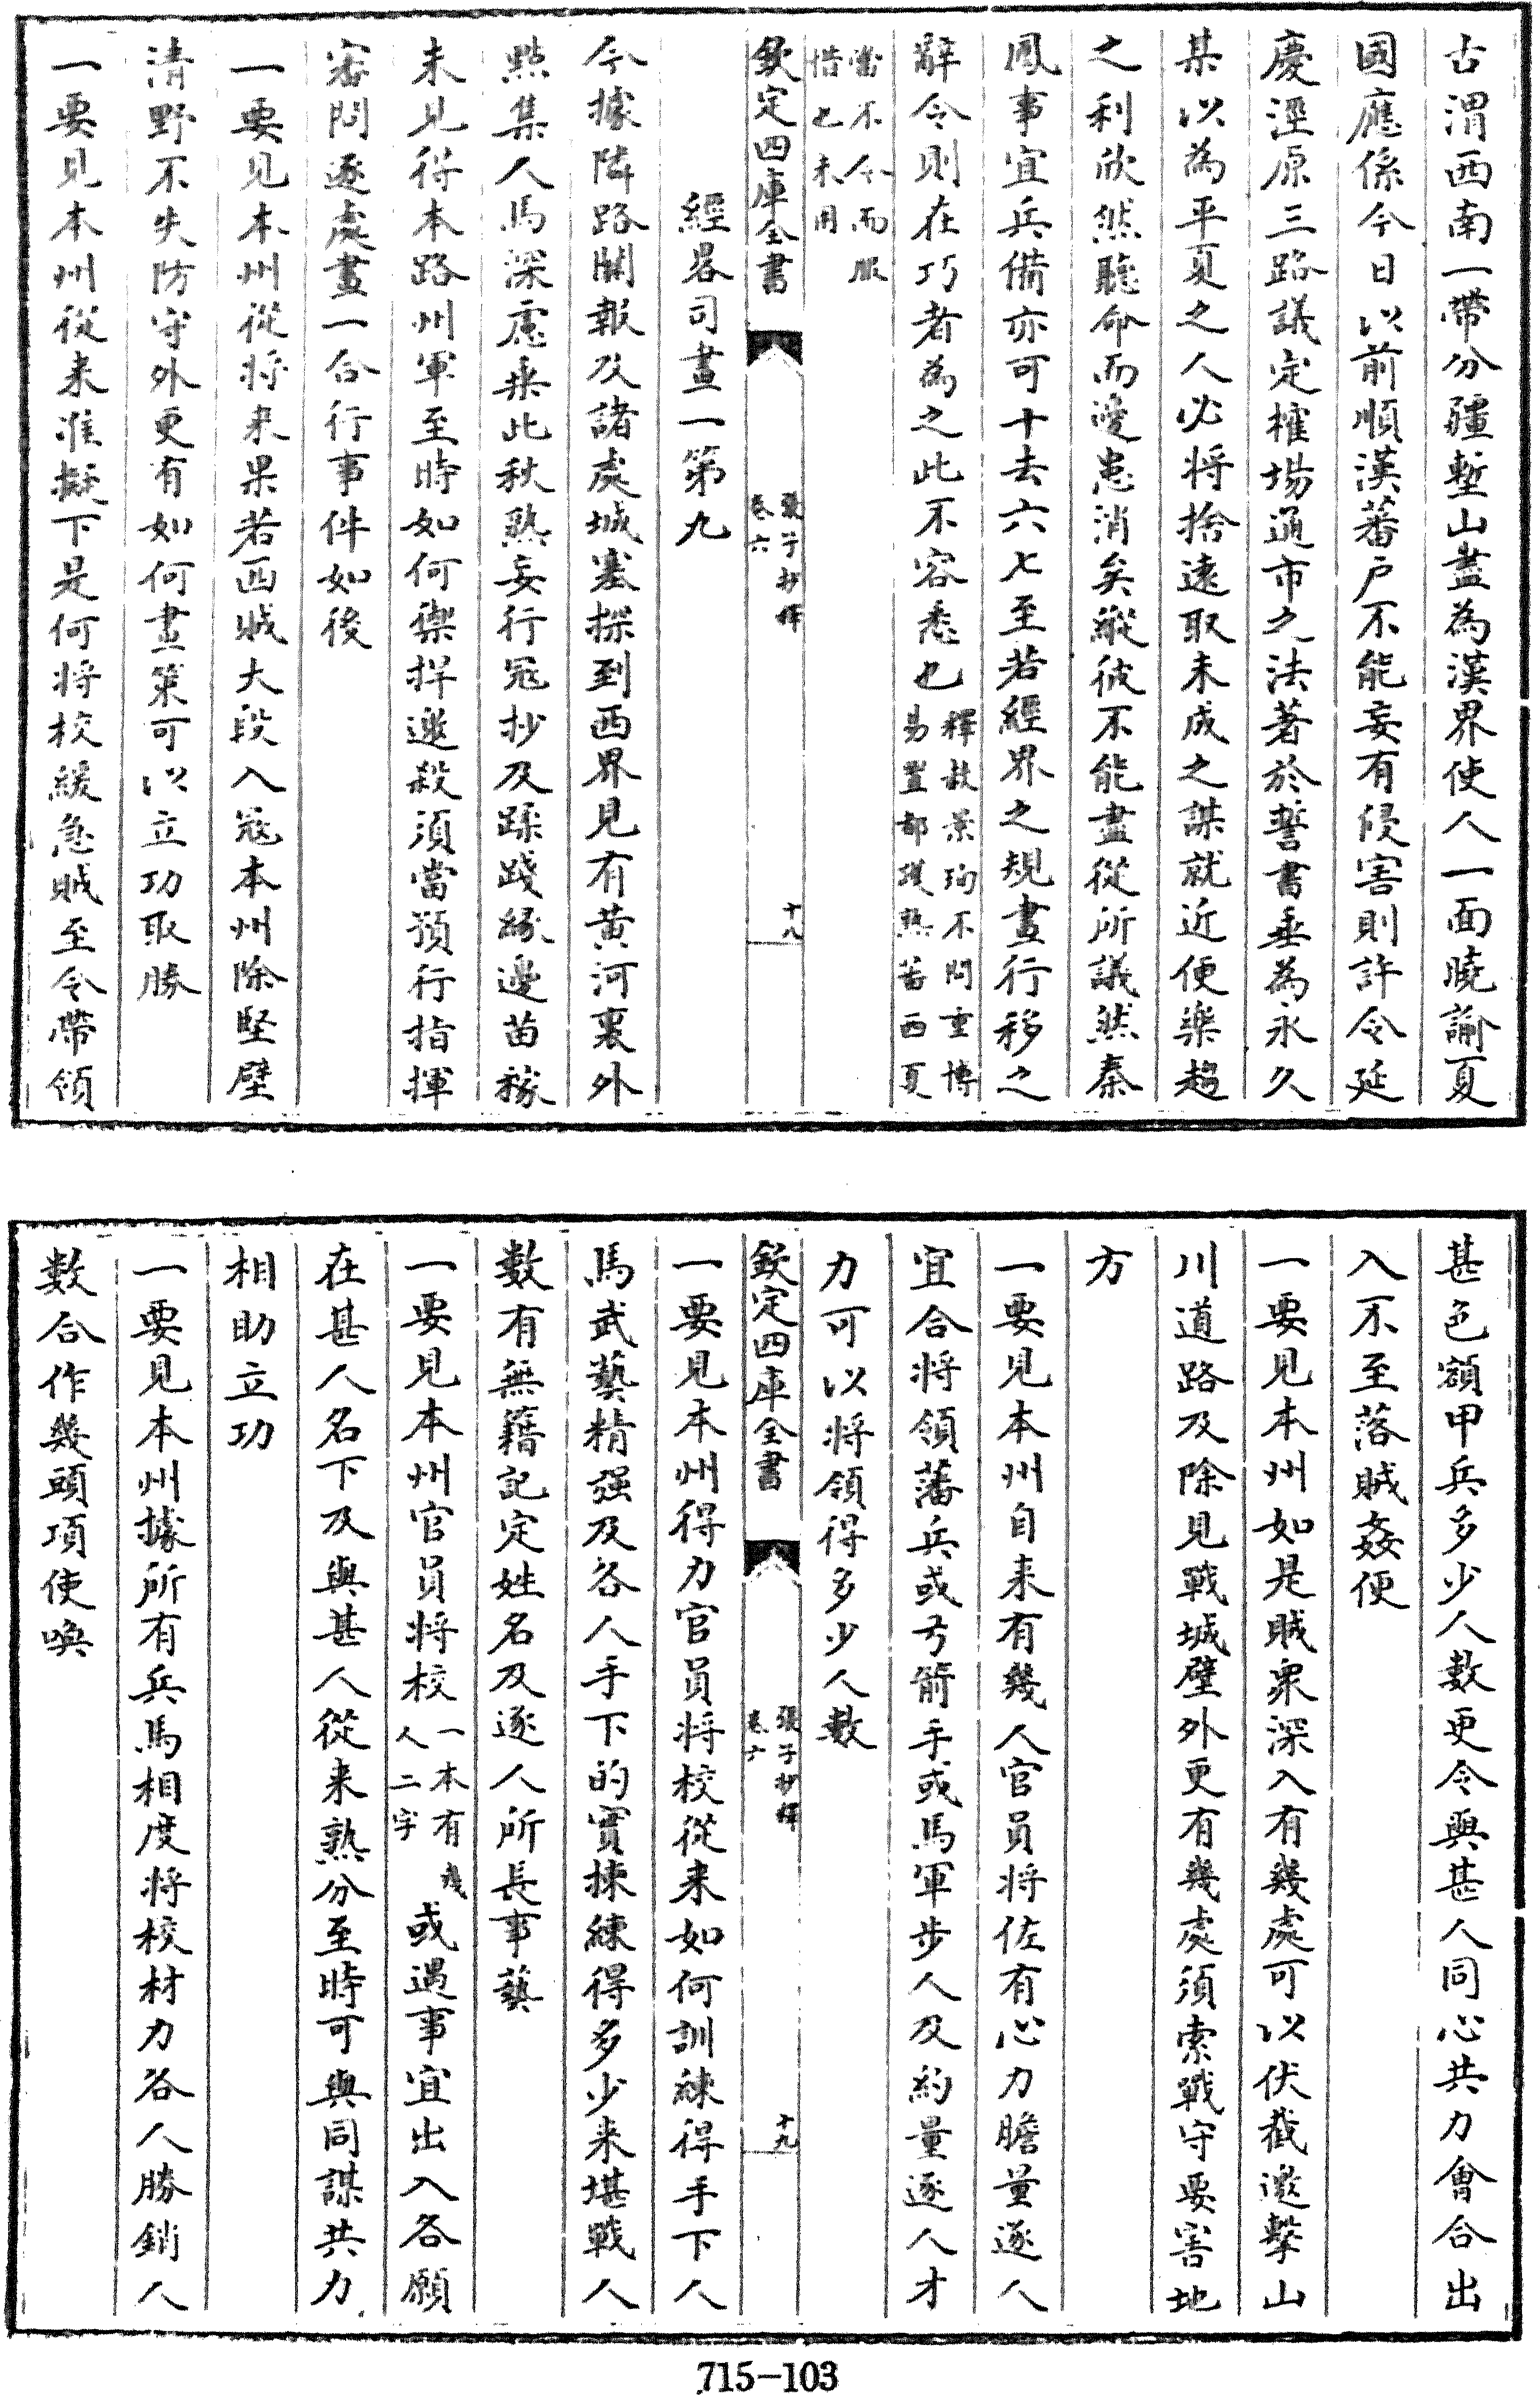 古渭西南一帶分疆塹山盡為漢界使人一面曉諭夏
國應係今日以前順漢蕃戶不能妄有侵害則許令延
慶涇原三路議定榷場通市之法著於誓書垂為永久
某以為平夏之人必将捨逺取未成之謀就近便樂趨
之利欣然聽命而邊患消矣縱彼不能盡從所議然秦
鳳事宜兵備亦可十去六七至若經界之規畫行移之
辭令則在巧者為之此不容悉也釋赦景珣不問重博
易置都護熟蕃西夏
當不令而服
惜也未用
欽定四庫全書
張子抄釋
卷六
十八
經畧司畫一第九
今據隣路關報及諸處城塞探到西界見有黄河裏外
㸃集人馬深慮乗此秋熟妄行冦抄及蹂踐縁邊苗稼
未見得本路州軍至時如何禦捍邀殺須當預行指揮
密問逐處畫一合行事件如後
一要見本州從将來果若西賊大段入冦本州除堅壁
清野不失防守外更有如何畫策可以立功取勝
一要見本州從来准擬下是何将校緩急賊至令帶領
甚色額甲兵多少人數更令與甚人同心共力㑹合出
入不至落賊姦便
一要見本州如是賊衆深入有幾處可以伏截邀撃山
川道路及除見戰城壁外更有幾處須索戰守要害地
方
一要見本州自来有幾人官員将佐有心力膽量逐人
宜合将領藩兵或弓箭手或馬軍步人及約量逐人才
力可以将領得多少人數
欽定四庫全書
張子抄釋
卷六
十九
一要見本州得力官員将校從来如何訓練得手下人
馬武藝精强及各人手下的實揀練得多少来堪戰人
數有無籍記定姓名及逐人所長事藝
一要見本州官員将校一本有幾
人二字或遇事宜出入各願
在甚人名下及與甚人從来熟分至時可與同謀共力
相助立功
一要見本州據所有兵馬相度将校材力各人勝銷人
數合作幾頭項使喚
715-103